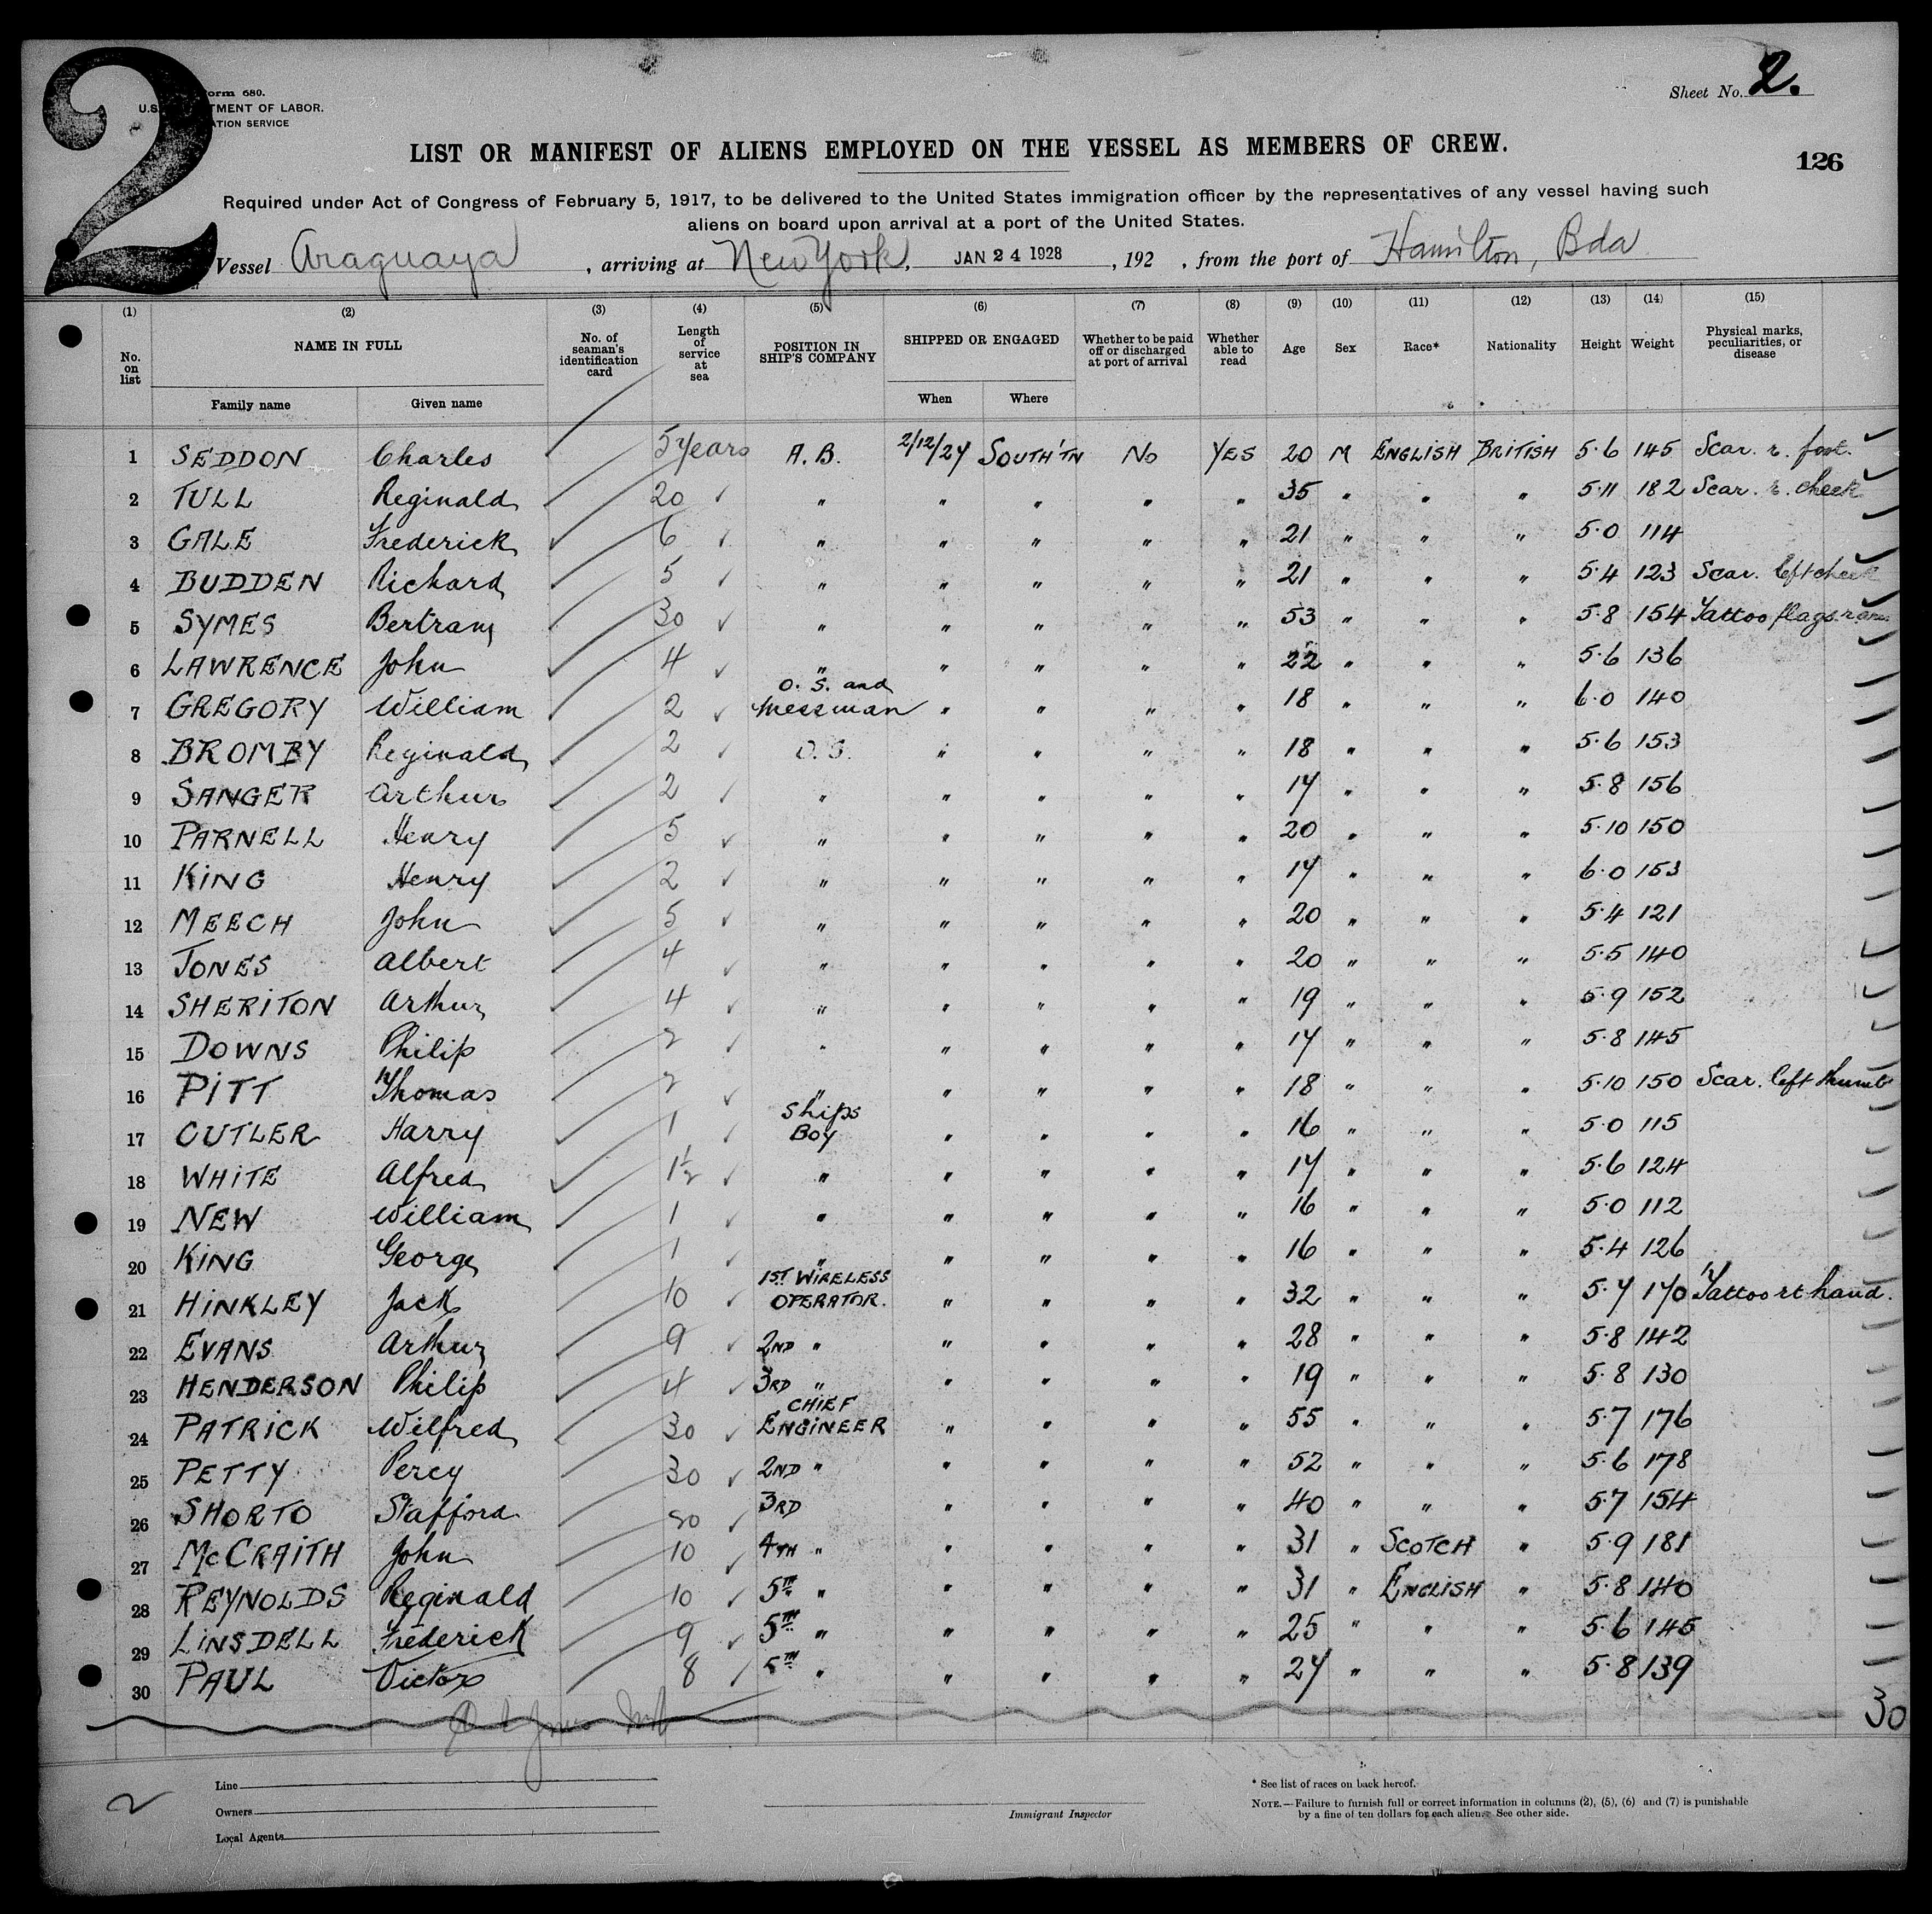 2
Form 680.
Sheet No. 2.
U.S. DEPARTMENT OF LABOR.
IMMIGRATION SERVICE
LIST OR MANIFEST OF ALIENS EMPLOYED ON THE VESSEL AS MEMBERS OF CREW.
126
Required under Act of Congress of February 5, 1917, to be delivered to the United States immigration officer by the representatives of any vessel having such
aliens on board upon arrival at a port of the United States.
Vessel Araguaya, arriving at New York, JAN 24 1928, 192 , from the port of Hamilton, Bda
(1) (2) (3) (4) (5) (6) (7) (8) (9) (10) (11) (12) (13) (14) (15)
No. on list NAME IN FULL Family name Given name No. of seaman's identification card Length of service at sea POSITION IN SHIP'S COMPANY SHIPPED OR ENGAGED When Where Whether to be paid off or discharged at port of arrival Whether able to read Age Sex Race* Nationality Height Weight Physical marks, peculiarities, or disease
1 SEDDON Charles 5 years A.B. 2/12/27 SOUTH'TN No YES 20 M ENGLISH BRITISH 5.6 145 Scar. r. foot.
2 TULL Reginald 20 " " " " " 35 " " " 5.11 182 Scar. r. cheek
3 GALE Frederick 6 " " " " " 21 " " " 5.0 114
4 BUDDEN Richard 5 " " " " " 21 " " " 5.4 123 Scar. left cheek
5 SYMES Bertram 30 " " " " " 53 " " " 5.8 154 Tattoo flags r arm
6 LAWRENCE John 4 " " " " " 22 " " " 5.6 136
7 GREGORY William 2 O.S. and Messman " " " " 18 " " " 6.0 140
8 BROMBY Reginald 2 O.S. " " " " 18 " " " 5.6 153
9 SANGER Arthur 2 " " " " " 17 " " " 5.8 156
10 PARNELL Henry 5 " " " " " 20 " " " 5.10 150
11 KING Henry 2 " " " " " 17 " " " 6.0 153
12 MEECH John 5 " " " " " 20 " " " 5.4 121
13 JONES Albert 4 " " " " " 20 " " " 5.5 140
14 SHERITON Arthur 4 " " " " " 19 " " " 5.9 152
15 DOWNS Philip 2 " " " " " 17 " " " 5.8 145
16 PITT Thomas 2 " " " " " 18 " " " 5.10 150 Scar. left thumb
17 CUTLER Harry 1 Ships Boy " " " " 16 " " " 5.0 115
18 WHITE Alfred 1½ " " " " " 17 " " " 5.6 124
19 NEW William 1 " " " " " 16 " " " 5.0 112
20 KING George 1 " " " " " 16 " " " 5.4 126
21 HINKLEY Jack 10 1ST WIRELESS OPERATOR. " " " " 32 " " " 5.7 170 Tattoo rt hand.
22 EVANS Arthur 9 2ND " " " " " 28 " " " 5.8 142
23 HENDERSON Philip 4 3RD " " " " " 19 " " " 5.8 130
24 PATRICK Wilfred 30 CHIEF ENGINEER " " " " 55 " " " 5.7 176
25 PETTY Percy 30 2ND " " " " " 52 " " " 5.6 178
26 SHORTO Stafford 20 3RD " " " " 40 " " " 5.7 154
27 McCRAITH John 10 4TH " " " " " 31 " SCOTCH " 5.9 181
28 REYNOLDS Reginald 10 5TH " " " " " 31 " ENGLISH " 5.8 140
29 LINSDELL Frederick 9 5TH " " " " " 25 " " " 5.6 145
30 PAUL Victor 8 5TH " " " " " 27 " " " 5.8 139
30
2
Line
Owners
Local Agents
Immigrant Inspector
* See list of races on back hereof.
NOTE.—Failure to furnish full or correct information in columns (2), (5), (6) and (7) is punishable
by a fine of ten dollars for each alien. See other side.